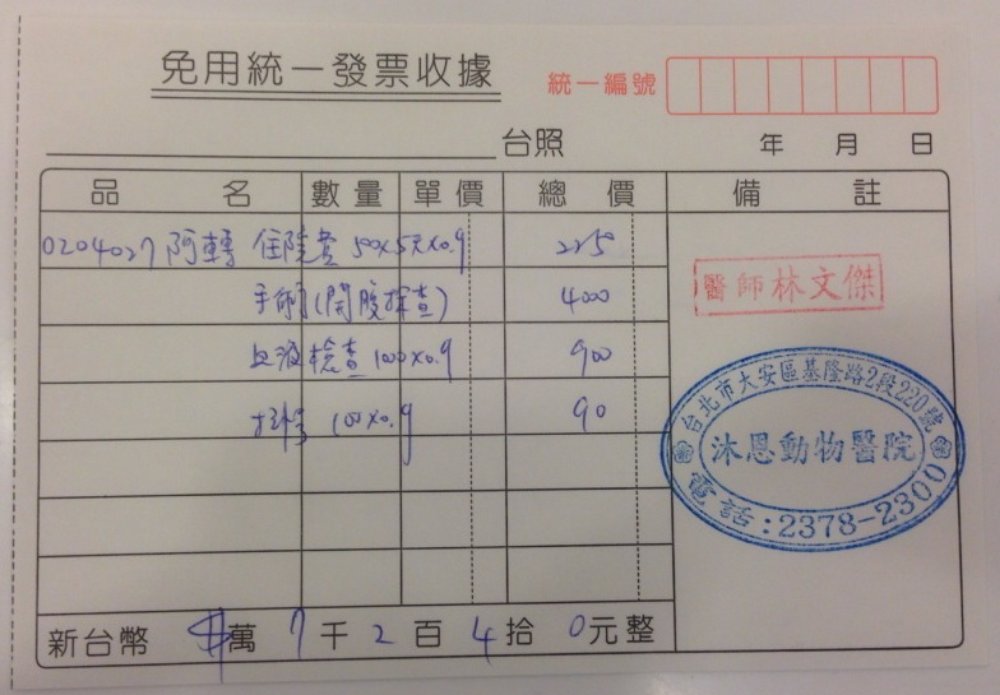 免用統一發票收據
統一編號
台照 年 月 日
品名 數量 單價 總價 備註
0204027 阿轉 住院費 500x5天x0.9 2250
手術(開腹探查) 4000
血液檢查 1000x0.9 900
打針 100x0.9 90
醫師林文傑
台北市大安區基隆路2段220號
沐恩動物醫院
電話:2378-2300
新台幣 $萬 7千 2百 4拾 0元整